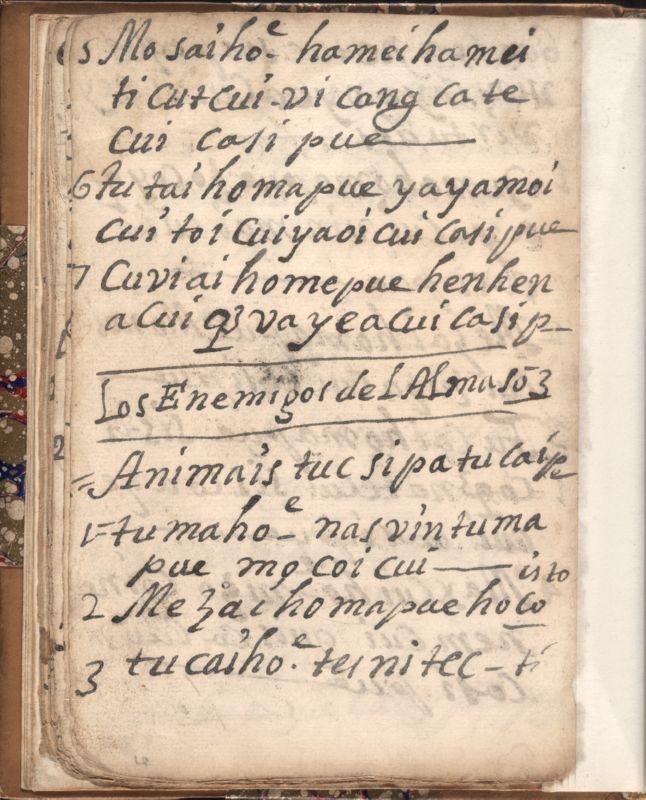 5 Mo saiho^e- hameihamei
ti cutcui-vi cang ca te
cui casi pue
6 tu tai homapue yayamoi
cui toi cuiyaoi cui casi pue
7 Cuviai homepue henhen
a cui q3 va yea cui casi p-
Los Enemigos del Alma sō 3
= Animais tuc si pa tu caip
1= tumaho^e- nas vin tuma
pue mo coi cui
2 Me zai homapue hoco
3 tu caiho^e. tei ni tec - ti